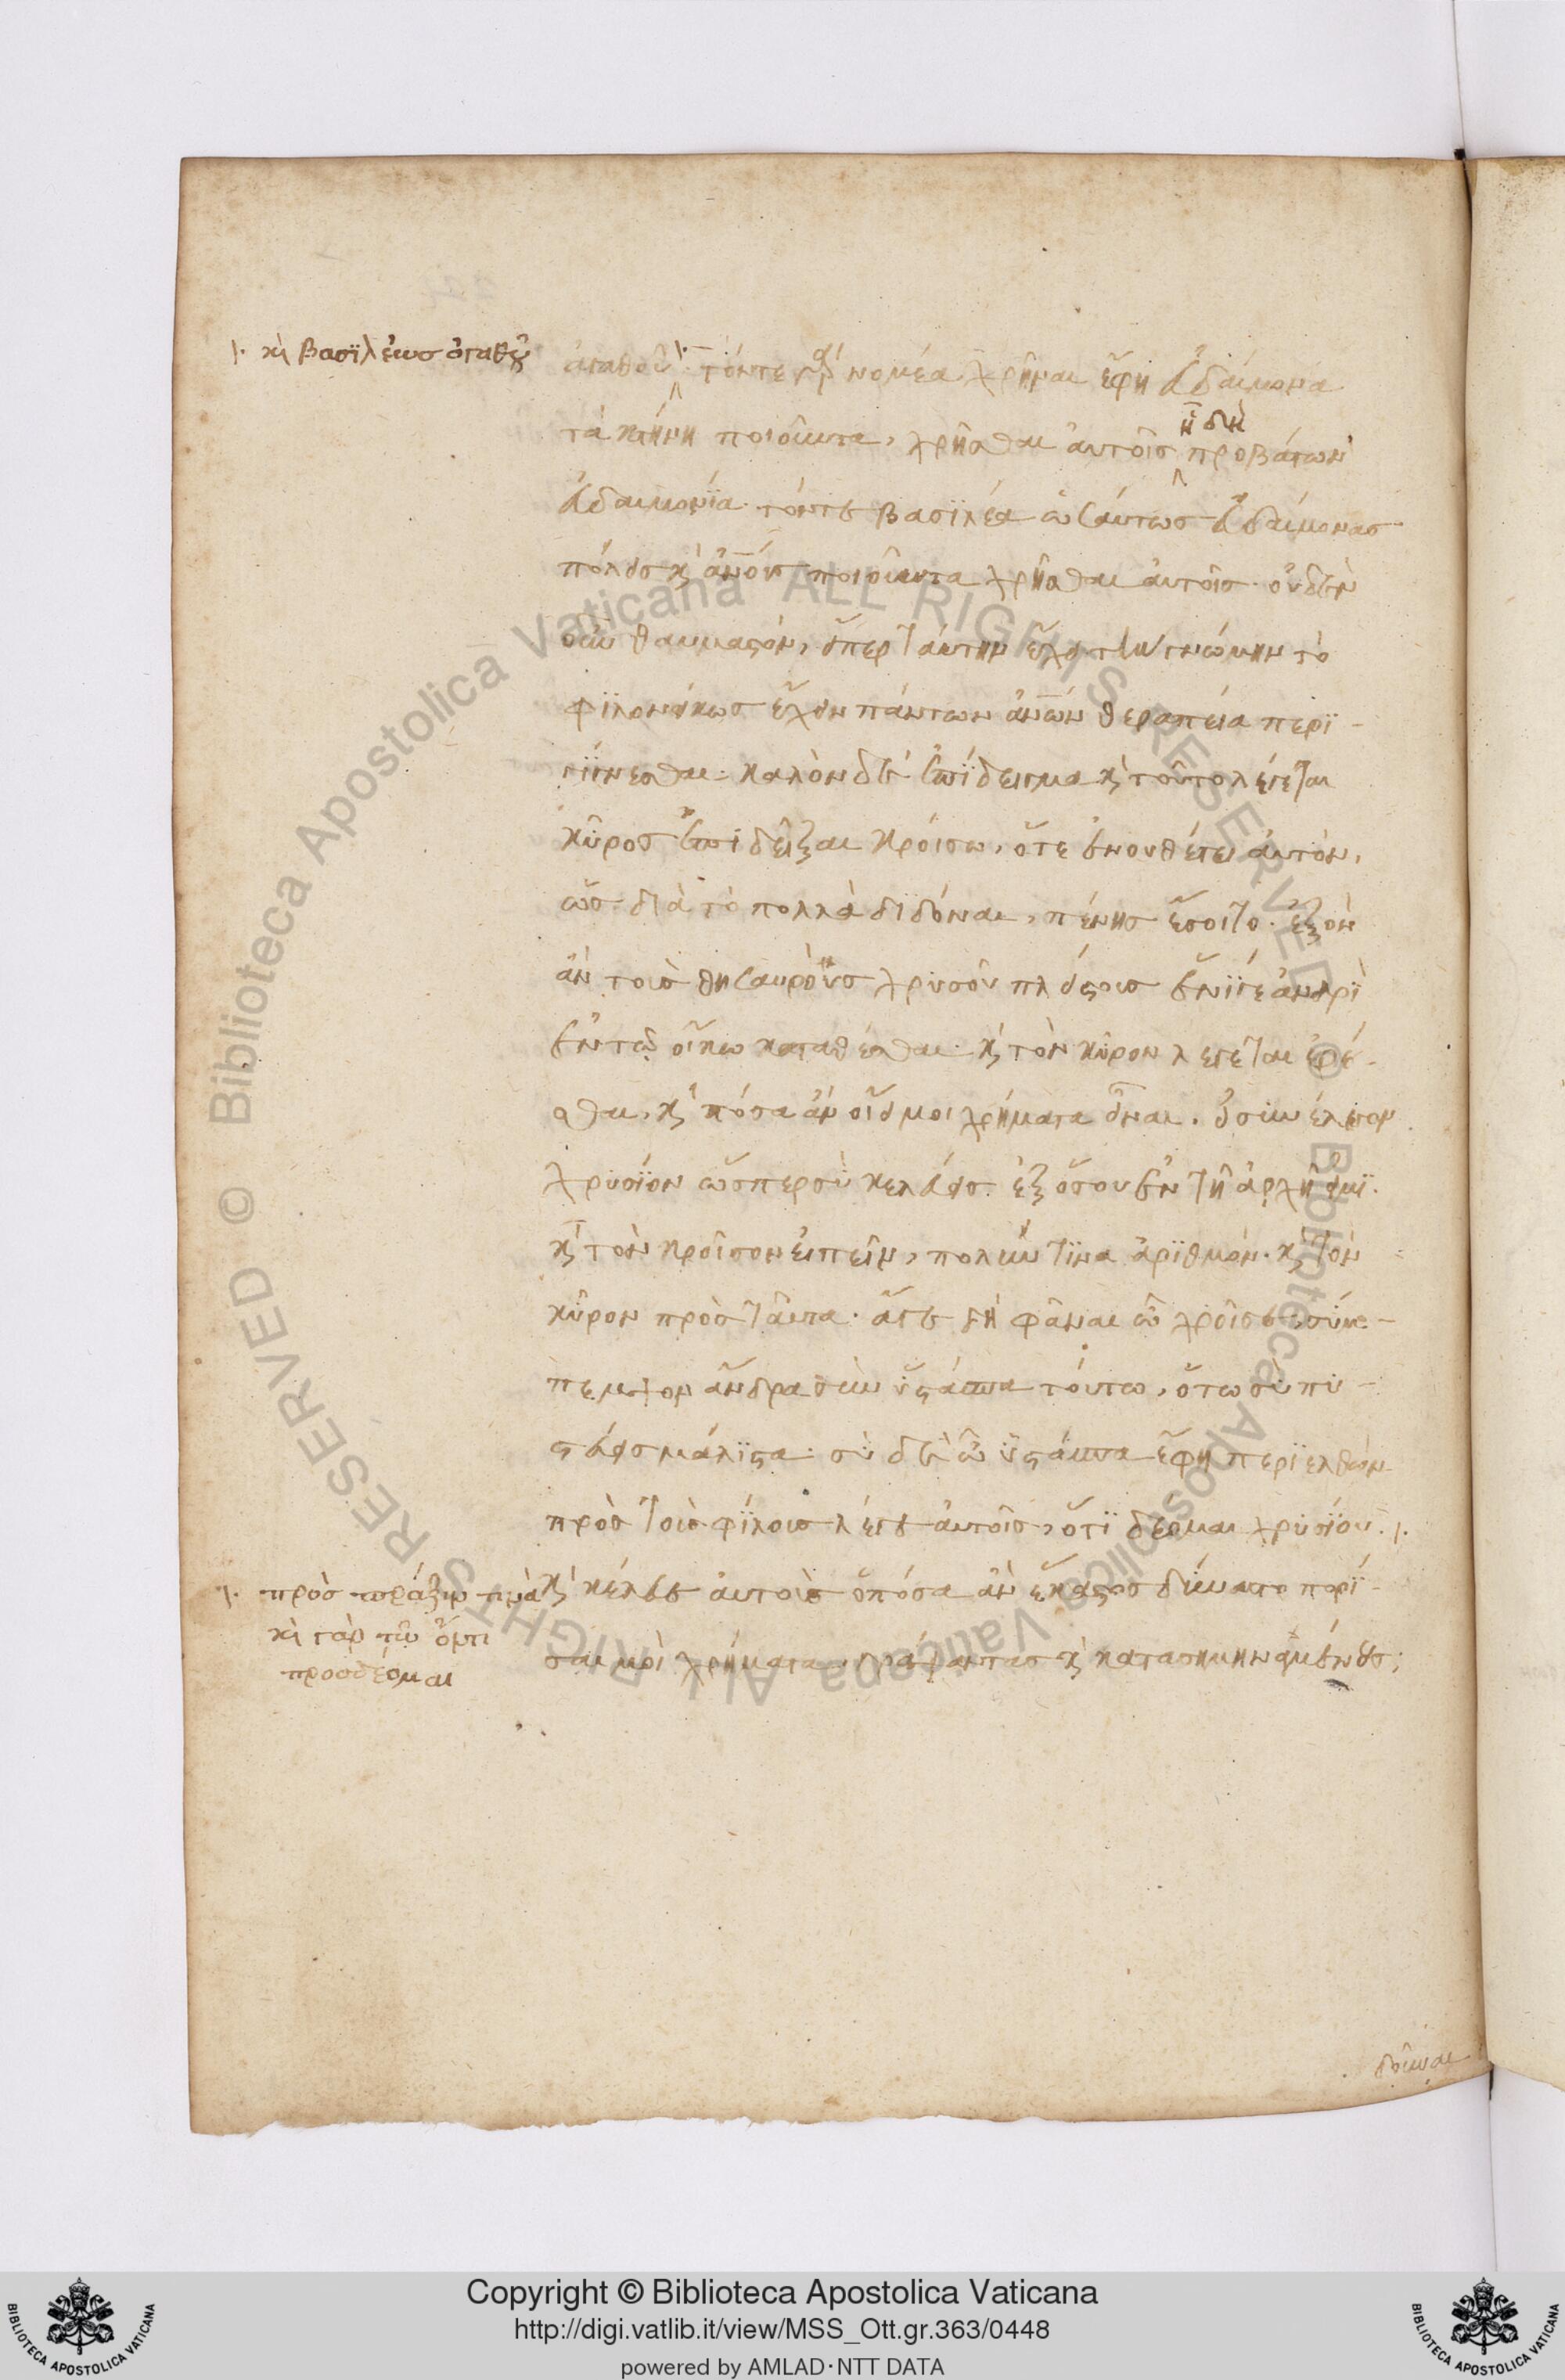 ⁒ κὶ βασϊλέωσ ἀγαθοῦ
ἀγαθοῦ· τόντε γὰρ νομέα χρῆναι ἔφη εὐδαίμονα
τὰ κτήνη ποιοῦντα, χρῆσθαι αὐτοῖσ ἧ δὴ προβάτων
εὐδαιμονία· τόντε βασϊλέα ὡσαύτωσ εὐδαίμονασ
πόλεισ κ̀ ἀνους ποιοῦντα χρῆσθαι αὐτοῖσ· οὐδὲν
οὖν θαυμαστὸν, εἴπερ ταύτην εἶχε τὴν γνώμην τὸ
φϊλονείκωσ ἔχειν πάντων ἀνων θεραπεία περϊ-
γίγνεσθαι· καλὸν δὲ ἐπίδειγμα κ̀ τοῦτο λέγεται
κῦροσ ἐπιδεῖξαι κροίσω, ὅτε ἐνουθέτει αὐτὸν,
ὡσ διὰ τὸ πολλὰ διδόναι, πένησ ἔσοιτο· ἐξὸν
ἀν τοισ θησαυροὺσ χρυσοῦ πλείστουσ ἑνίγε ἀνδρὶ
ἐν τῶ οἴκω καταθέσθαι· κ̀ τὸν κῦρον λέγεται ἐρέ-
σθαι, κ̀ πόσα ἀν οἴει μοι χρήματα εἶναι· εἰ συνέλεγον
χρυσίον ὥσπερ σὺ κελεύεισ ἐξ ὅσου ἐν τῆ ἀρχῆ εἰμϊ·
κ̀ τὸν κροῖσον εἰπεῖν, πολύν τϊνα ἀρϊθμόν· κ̀ τὸν
κῦρον πρὸσ ταῦτα· ἄγε δὴ φάναι ὦ χροῖσε, σύμ-
πεμψον ἄνδρα σὺν ὑστάσπα τούτω, ὅτω σὺ πι-
στεύεισ μάλϊστα· σὺ δὲ ὦ ὑστάσπα ἔφη περϊελθὼν
πρὸσ τοὺσ φίλουσ λέγε αὐτοῖσ, ὅτϊ δέομαι χρυσίου. ⁒
⁒ πρὸσ πρᾶξιν τινὰ
κὶ γὰρ τῶ ὄντι
προσδέομαι
κ̀ κέλευε αὐτοὺσ ὁπόσα ἀν ἕκαστοσ δύναιτο πορί-
σαι μοὶ χρήματα, γράψαντασ κ̀ κατασημηναμένουσ;
δοῦναι